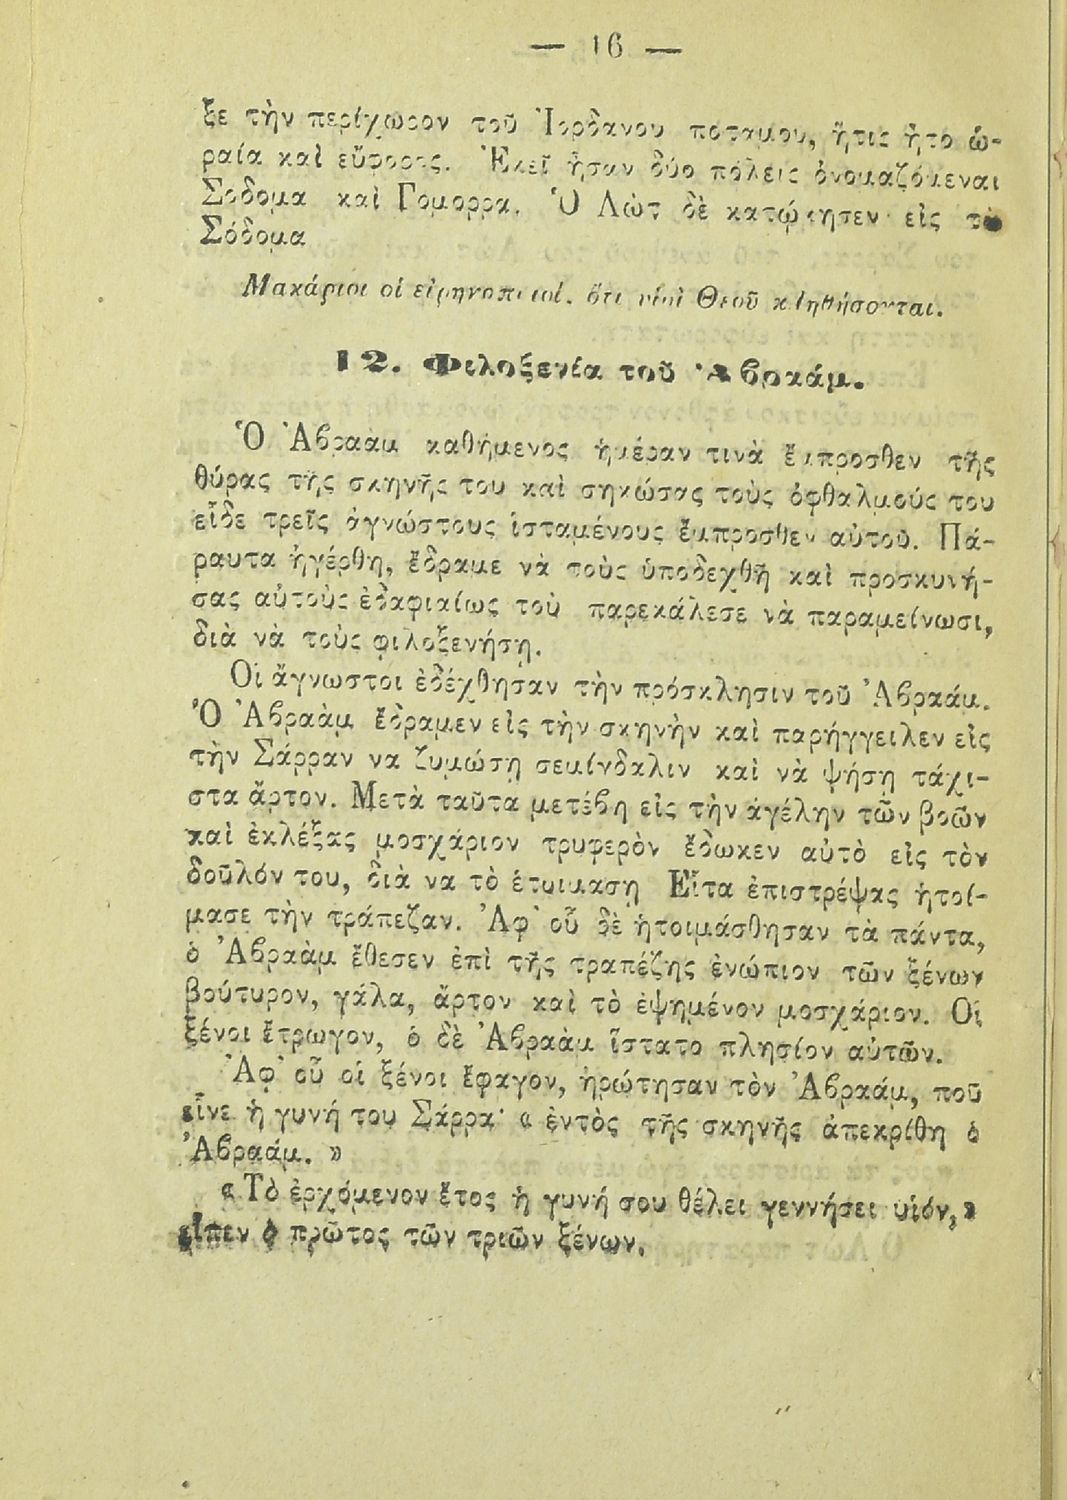 — 16 —
ξε τὴν περίχωρον τοῦ Ἰορδάνου ποταμοῦ, ἥτις ἦτο ὡ-
ραία καὶ εὔφορος. Ἐκεῖ ἦσαν δύο πόλεις ὀνομαζόμεναι
Σόδομα καὶ Γομορρα. Ὁ Λὼτ δὲ κατῴκησεν εἰς τὰ
Σόδομα
Μακάριοι οἱ εἰρηνοποιοί, ὅτι υἱοὶ Θεοῦ κληθήσονται.
12. Φιλοξενία τοῦ Ἀβραάμ.
Ὁ Ἀβραὰμ καθήμενος ἡμέραν τινὰ ἔμπροσθεν τῆς
θύρας τῆς σκηνῆς του καὶ σηκώσας τοὺς ὀφθαλμούς του
εἶδε τρεῖς ἀγνώστους ἱσταμένους ἔμπροσθεν αὐτοῦ. Πά-
ραυτα ἠγέρθη, ἔδραμε νὰ τοὺς ὑποδεχθῇ καὶ προσκυνή-
σας αὐτοὺς ἐδαφιαίως τοὺ παρεκάλεσε νὰ παραμείνωσι,
διὰ νὰ τοὺς φιλοξενήσῃ.
Οἱ ἄγνωστοι ἐδέχθησαν τὴν πρόσκλησιν τοῦ Ἀβραάμ.
Ὁ Ἀβραὰμ ἔδραμεν εἰς τὴν σκηνὴν καὶ παρήγγειλεν εἰς
τὴν Σάρραν να ζυμώσῃ σεμίνδαλιν καὶ νὰ ψήσῃ τάχι-
στα ἄρτον. Μετὰ ταῦτα μετέβη εἰς τὴν ἀγέλην τῶν βοῶν
καὶ ἐκλέξας μοσχάριον τρυφερὸν ἔδωκεν αὐτὸ εἰς τὸν
δοῦλόν του, διὰ να τὸ ἑτοιμασῃ Εἶτα ἐπιστρέψας ἡτοί-
μασε τὴν τράπεζαν. Ἀφ' οὗ δὲ ἡτοιμάσθησαν τὰ πάντα,
ὁ Ἀβραὰμ ἔθεσεν ἐπὶ τῆς τραπέζης ἐνώπιον τῶν ξένων
βούτυρον, γάλα, ἄρτον καὶ τὸ ἐψημένον μοσχάριον. Οἱ
ξένοι ἔτρωγον, ὁ δὲ Ἀβραὰμ ἵστατο πλησίον αὐτῶν.
Ἀφ' οὗ οἱ ξένοι ἔφαγον, ἠρώτησαν τὸν Ἀβραάμ, ποῦ
εἶνε ἡ γυνή του Σάρρα· « ἐντὸς τῆς σκηνῆς ἀπεκρίθη ὁ
Ἀβραάμ. »
« Τὸ ἐρχόμενον ἔτος ἡ γυνή σου θέλει γεννήσει υἱόν, »
εἶπεν ὁ πρῶτος τῶν τριῶν ξένων.